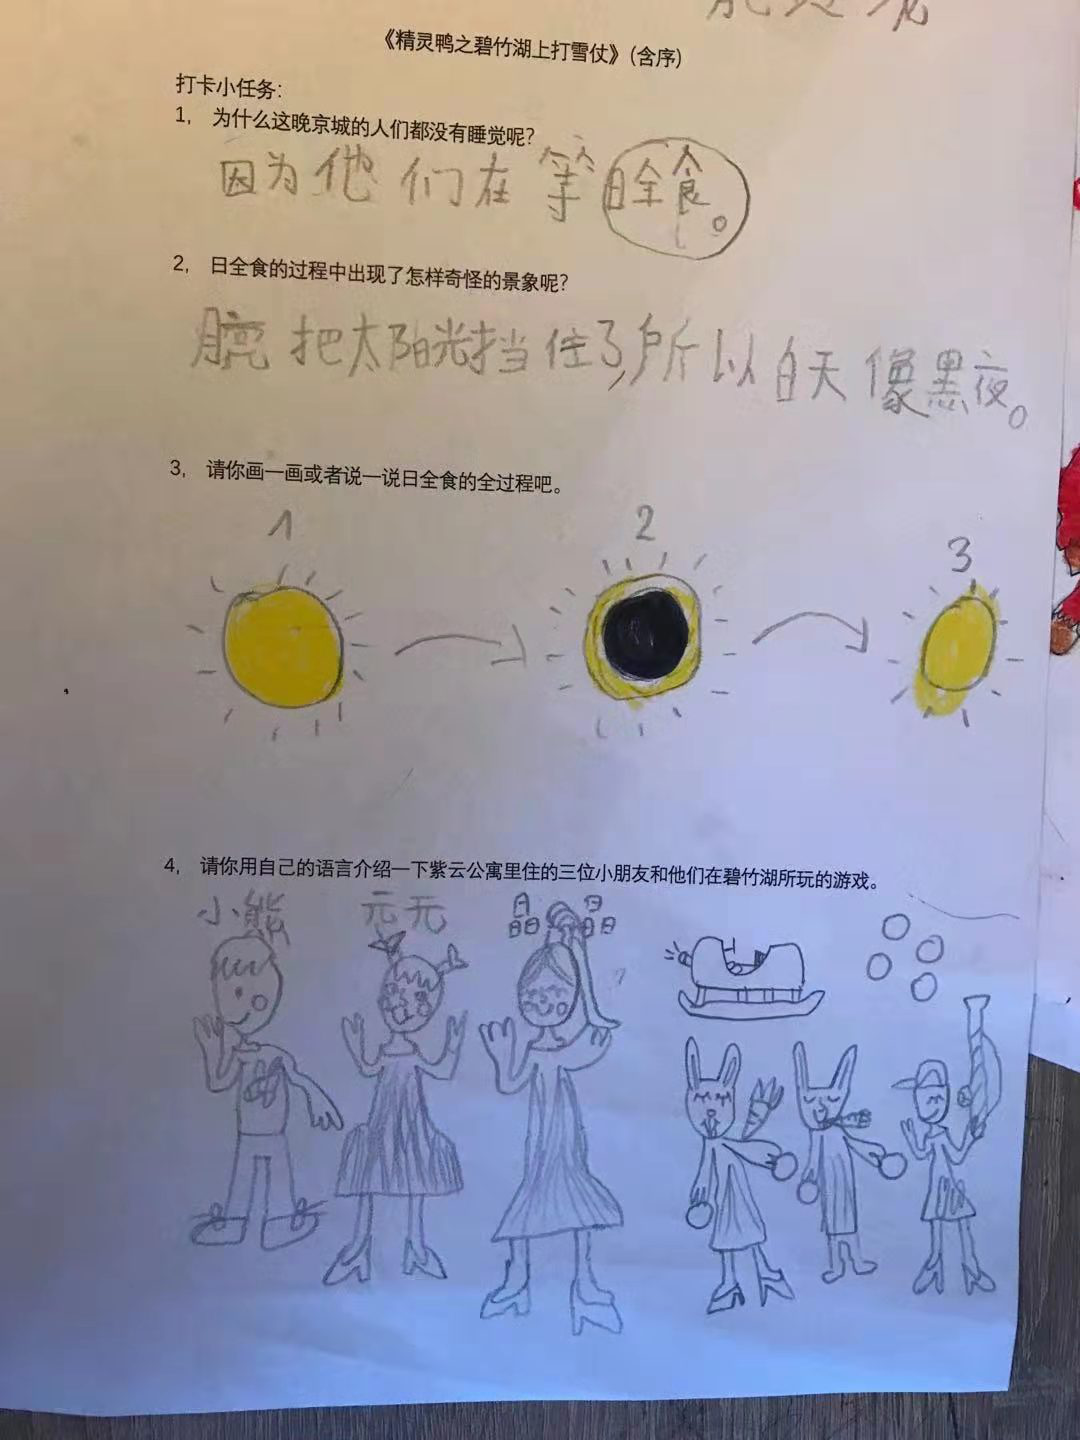 《精灵鸭之碧竹湖上打雪仗》（含序）
打卡小任务：
1， 为什么这晚京城的人们都没有睡觉呢？
因为他们在等日全食。
2， 日全食的过程中出现了怎样奇怪的景象呢？
把太阳光挡住了，所以白天像黑夜。
3， 请你画一画或者说一说日全食的全过程吧。
1 2 3
4， 请你用自己的语言介绍一下紫云公寓里住的三位小朋友和他们在碧竹湖所玩的游戏。
小熊 元元 晶晶